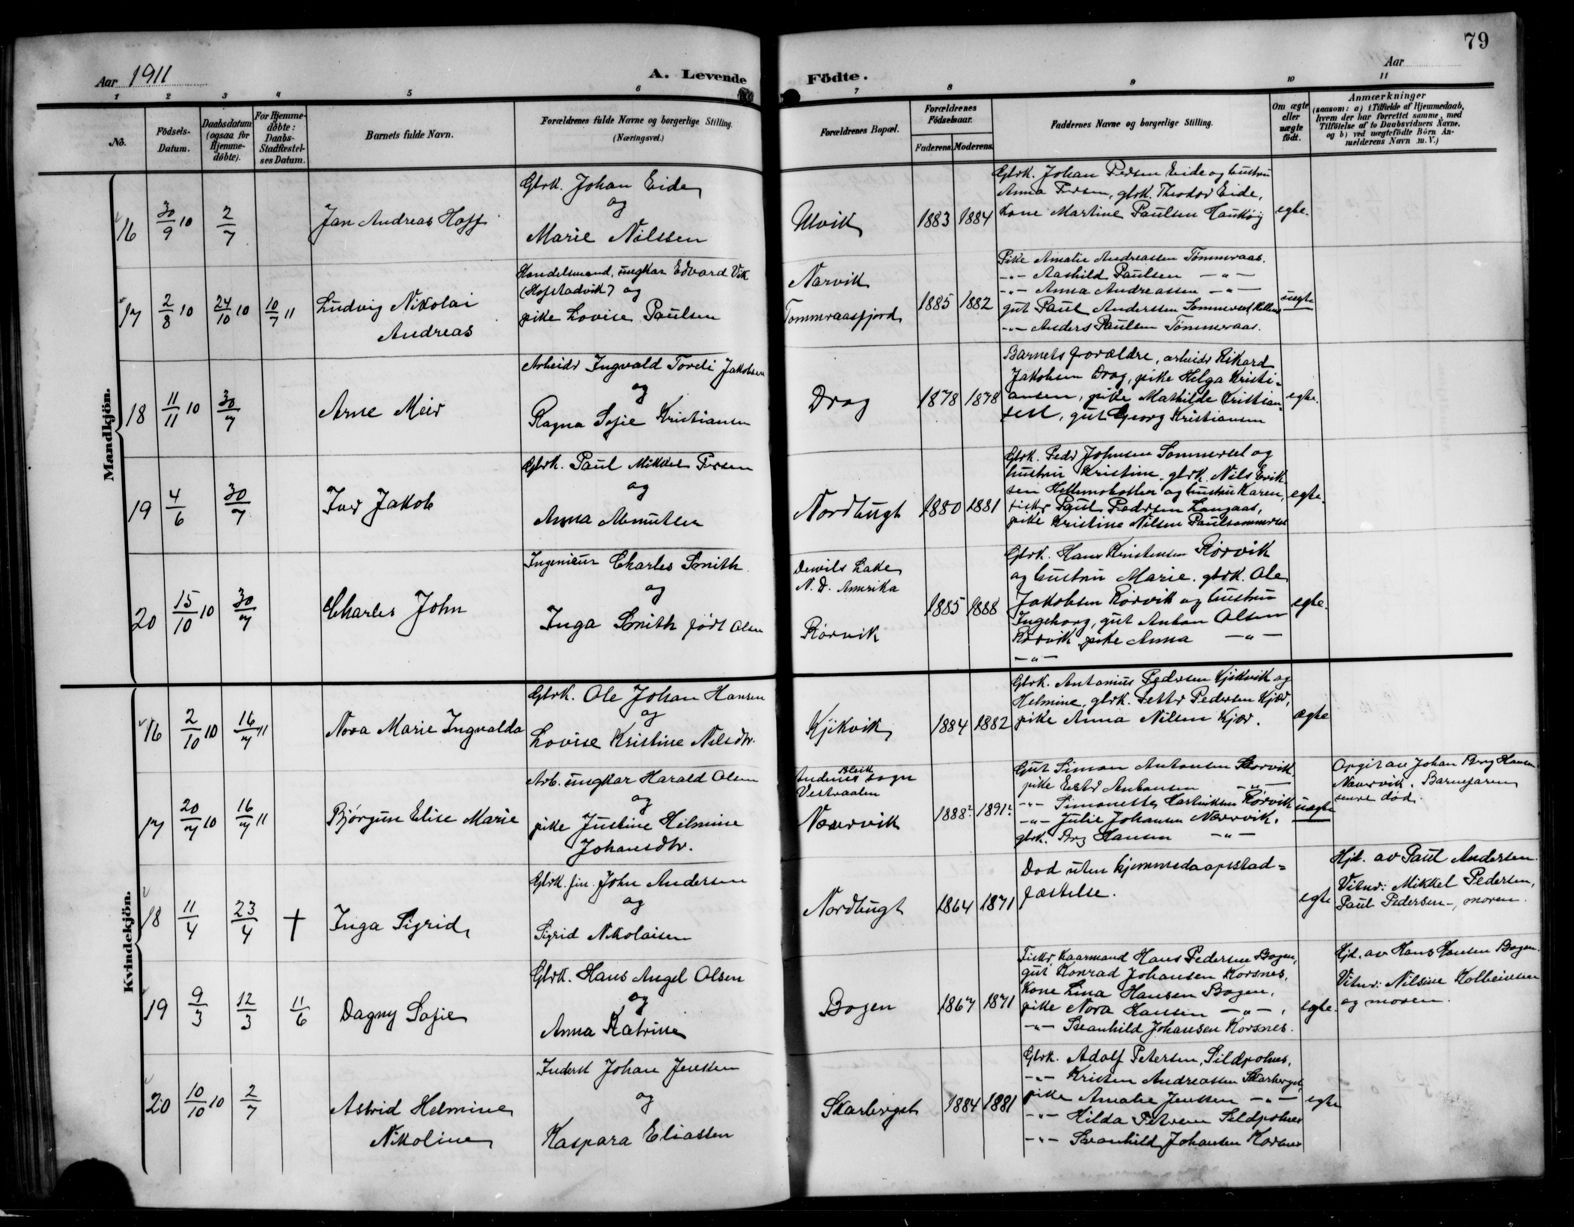 79
Aar 1911
A. Levende Födte.
Aar
1 2 3 4 5 6 7 8 9 10 11
No.
Födsels-Datum.
Daabsdatum (ogsaa for Hjemme-döbte).
For Hjemme-döbte: Daabs-Stadfæstel-ses Datum.
Barnets fulde Navn.
Forældrenes fulde Navne og borgerlige Stilling.
(Næringsvei.)
Forældrenes Bopæl.
Forældrenes Födselsaar.
Faderens. Moderens.
Faddernes Navne og borgerlige Stilling.
Om ægte eller uægte födt.
Anmærkninger
(saasom: a) i Tilfælde af Hjemmedaab, hvem der har forrettet samme, med Tilföielse af to Daabsvidners Navne, og b) ved uægtefödte Börn An-melderens Navn m. V.)
Mandkjön.
16 30/9 10 2/7
Jan Andreas Hoff
Gbrk. Johan Eide
og
Marie Nilssen
Ulvik
1883 1884
Gbrk. Johan Persen Eide og hustru
Anna Persen, gbrk. Theodor Eide,
Kone Martine Paulsen Haukøy
egte.
17 2/8 10 24/10 10 10/7 11
Ludvig Nikolai
Andreas
Handelsmand, ungkar Edvard Vik
(Hofstadvik) og
pike Lovise Paulsen
Narvik
Tømmeraasfjord
1885 1882
Pike Amalie Andreassen Tømmeraas.
-"- Aashild Paulsen -"-
-"- Anna Andreassen -"-
gut Paul Anderssen Sommerset
-"- Anders Paulsen Tømmeraas.
uegte
18 11/11 10 30/7
Arne Meir
Arbeider Ingvald Toreli Jakobsen
og
Ragna Sofie Kristiansen
Drag
1878 1878
Barnets forældre, arbeider Rikard
Jakobsen Drag, pike Helga Kristi-
ansen, pike Mathilde Kristian-
sen, gut Georg Kristiansen
egte.
19 4/6 30/7
Iver Jakob
Gbrk. Paul Mikkel Persen
og
Anna Asmutsen
Nordbugt
1880 1881
Gbrk. Peder Johnsen Sommerset og
hustru Kristine, gbrk. Nils Erik
sen Hellemobotten og hustru Karen,
fisker Paul Pedersen Langaas,
pike Kristine Nilsen Paulsommerset
egte.
20 15/10 10 30/7
Charles John
Ingeniør Charles Smith
og
Inga Smith født Olsen
Dewils Lake
N. D. Amerika
Rørvik
1885 1888
Gbrk. Hans Kristensen Rørvik
og hustru Marie, gbrk. Ole
Jakobsen Rørvik og hustru
Ingeborg, gut Anton Olsen
Rørvik, pike Anna -"-
-"-
egte.
Kvindekjön.
16 2/10 10 16/7 11
Nora Marie Ingvalda
Gbrk. Ole Johan Hansen
og
Lovise Kristine Nilsdtr.
Kjikvik
1884 1882
Gbrk. Antonius Pedersen Kjikvik og
Helmine, gbrk. Petter Pedersen Kjær,
pike Anna Nilsen Kjær.
ægte
17 20/7 10 16/7 11
Bjørgun Elise Marie
Arb. ungkar Harald Olsen
og
pike Justine Helmine
Johansdtr.
Andenes Bleik sogn
Vestraalen
Næervik
1888? 1891?
Gut Simon Antonsen Korvik
pike Ester Antonsen -"-
-"- Simonette Hartviksen Rørvik
-"- Julie Johansen Nærvik,
gbrk. Brg Hansen -"-
uægte
Opgit av Johan Brg Hansen
Nærvik. Barnefaren
senere død.
18 11/4 23/4 †
Inga Sigrid
Gbrk. fin. John Andersen
og
Sigrid Nikolaisen
Nordbugt
1864 1871
Død uten hjemmedaapsstad-
fæstelse.
egte
Hjd. av Paul Andersen.
Vitner: Mikkel Pedersen,
Paul Pedersen, moren.
19 9/3 12/3 11/6
Dagny Sofie
Gbrk. Hans Angel Olsen
og
Anna Katrine
Bogen
1867 1871
Fisker Kaarmand Hans Pedersen Bogen,
gut Konrad Johansen Korsnes,
Kone Lina Hansen Bogen,
pike Nora Hansen -"-,
-"- Svanhild Johansen Korsnes.
egte.
Hjd. av Hans Hansen Bogen.
Vitner: Nilsine Kolbeinsen
og moren.
20 10/10 10 2/7
Astrid Helmine
Nikoline
Inderst Johan Jenssen
og
Kaspara Eliassen
Skarberget
1884 1881
Gbrk. Adolf Petersen, Sildpolnes,
-"- Kristen Andreassen Skarberget,
pike Amalie Jenssen -"-
-"- Hilda Petersen Sildpolnes
-"- Svanhild Johansen Korsnes
egte